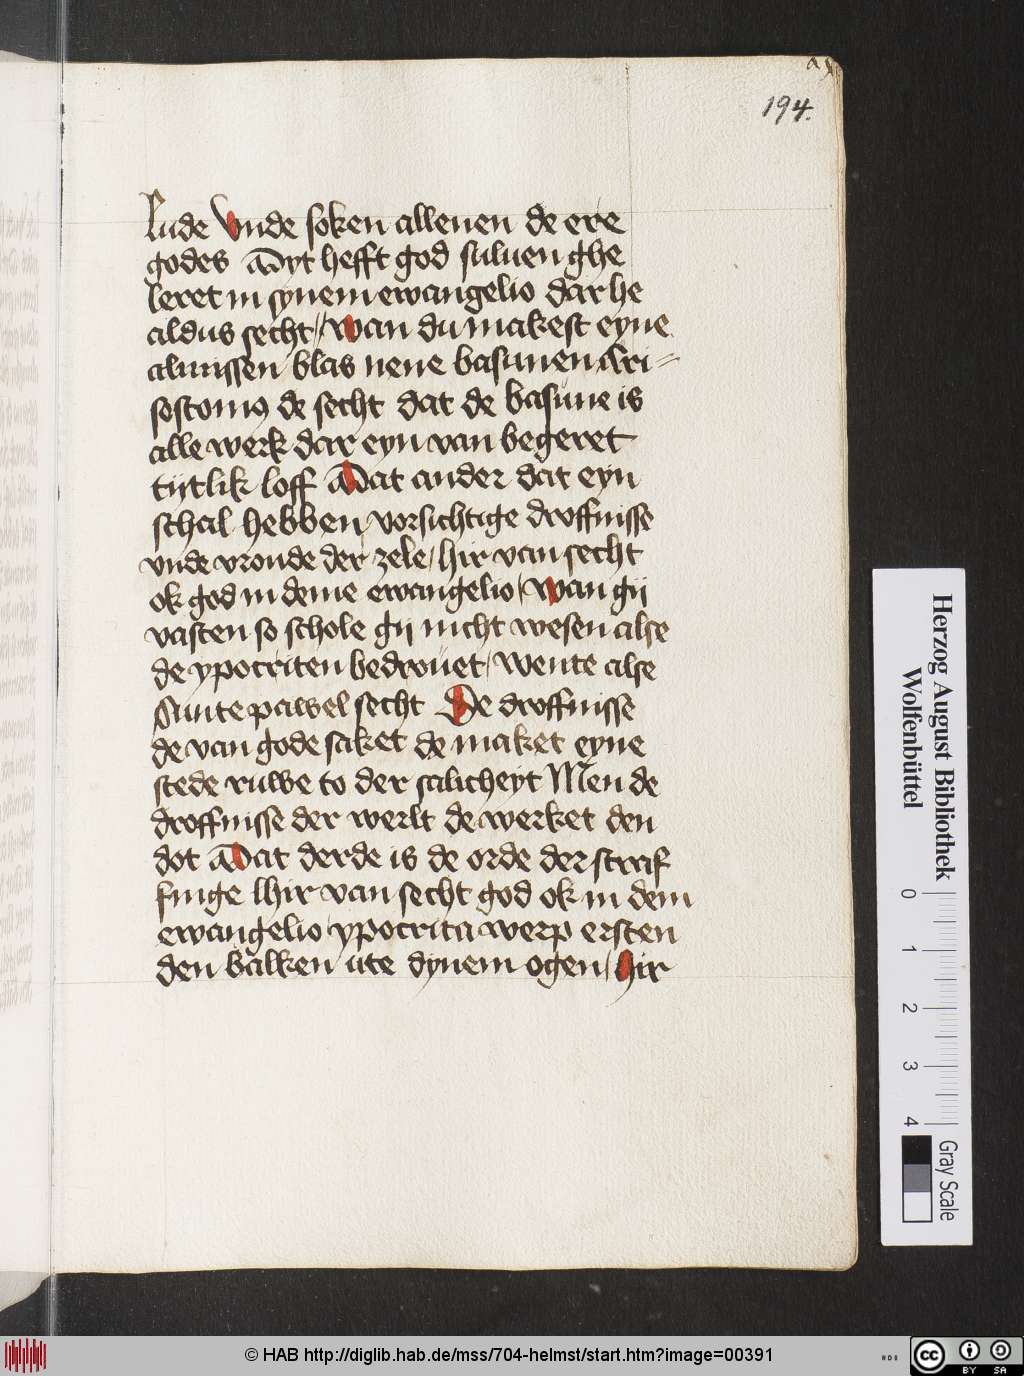 194.
lude vnde soken allenen de ere
godes Dyt hefft god suluen ghe
leret in synem ewangelio dar he
aldus secht / wan du makest eyne
almissen blas nene basunen Cri=
sostomꝰ de secht dat de basune is
alle werk dar eyn van begeret
tijtlik loff Dat ander dat eyn
schal hebben vorsichtige droffnisse
vnde vroude der zele / hir van secht
ok god in deme ewangelio / wan gij
vasten so schole gij nicht wesen alse
de ypocriten bedrouet / wente alse
Sunte pawel secht De droffnisse
de van gode saket de maket eyne
stede ruwe to der salicheyt Men de
droffnisse der werlt de werket den
dot Dat derde is de orde der straf
finge hir van secht god ok in dem
ewangelio ypocrita werp ersten
den balken ute dynem ogen / hir
Herzog August Bibliothek
Wolfenbüttel
0 1 2 3 4
Gray Scale
© HAB http://diglib.hab.de/mss/704-helmst/start.htm?image=00391
HAB
cc BY SA